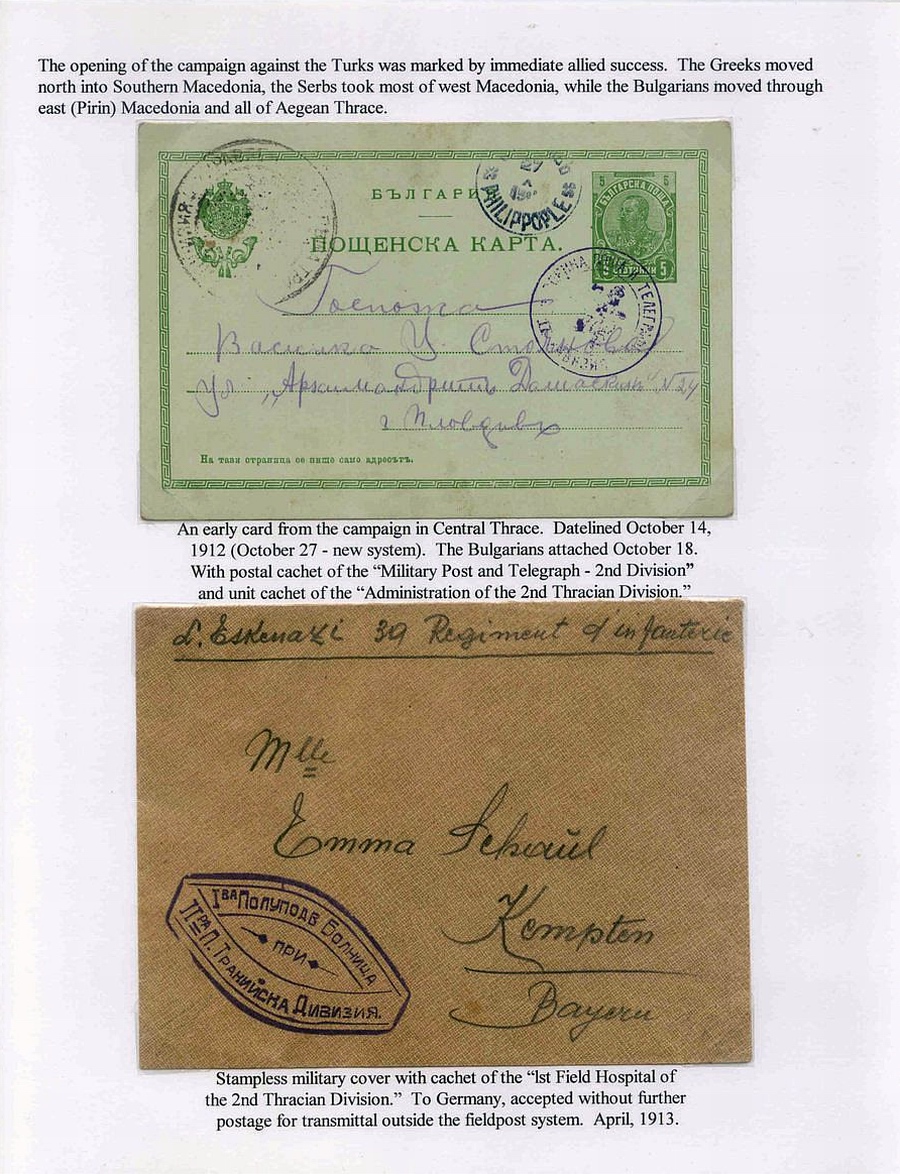 The opening of the campaign against the Turks was marked by immediate allied success. The Greeks moved
north into Southern Macedonia, the Serbs took most of west Macedonia, while the Bulgarians moved through
east (Pirin) Macedonia and all of Aegean Thrace.
БЪЛГАРИ
27
PHILIPPOPLE
5 5
БЪЛГАРСКА ПОЩА
5 5
ПОЩЕНСКА КАРТА.
ТЕЛЕГРА
Госпожа
Василка Ц. Стоянова
ул. „Архимандритъ Дамаскинъ" N 24
г. Пловдивъ
На тази страница се пише само адресътъ.
An early card from the campaign in Central Thrace. Datelined October 14,
1912 (October 27 - new system). The Bulgarians attached October 18.
With postal cachet of the “Military Post and Telegraph - 2nd Division”
and unit cachet of the “Administration of the 2nd Thracian Division.”
L. Eskenazi 39 Regiment d'infanterie
Mlle
Emma Schaül
Kempten
Bayern
Iва Полуподв Болница
при
IIра П. Тракийска Дивизия.
Stampless military cover with cachet of the “lst Field Hospital of
the 2nd Thracian Division.” To Germany, accepted without further
postage for transmittal outside the fieldpost system. April, 1913.